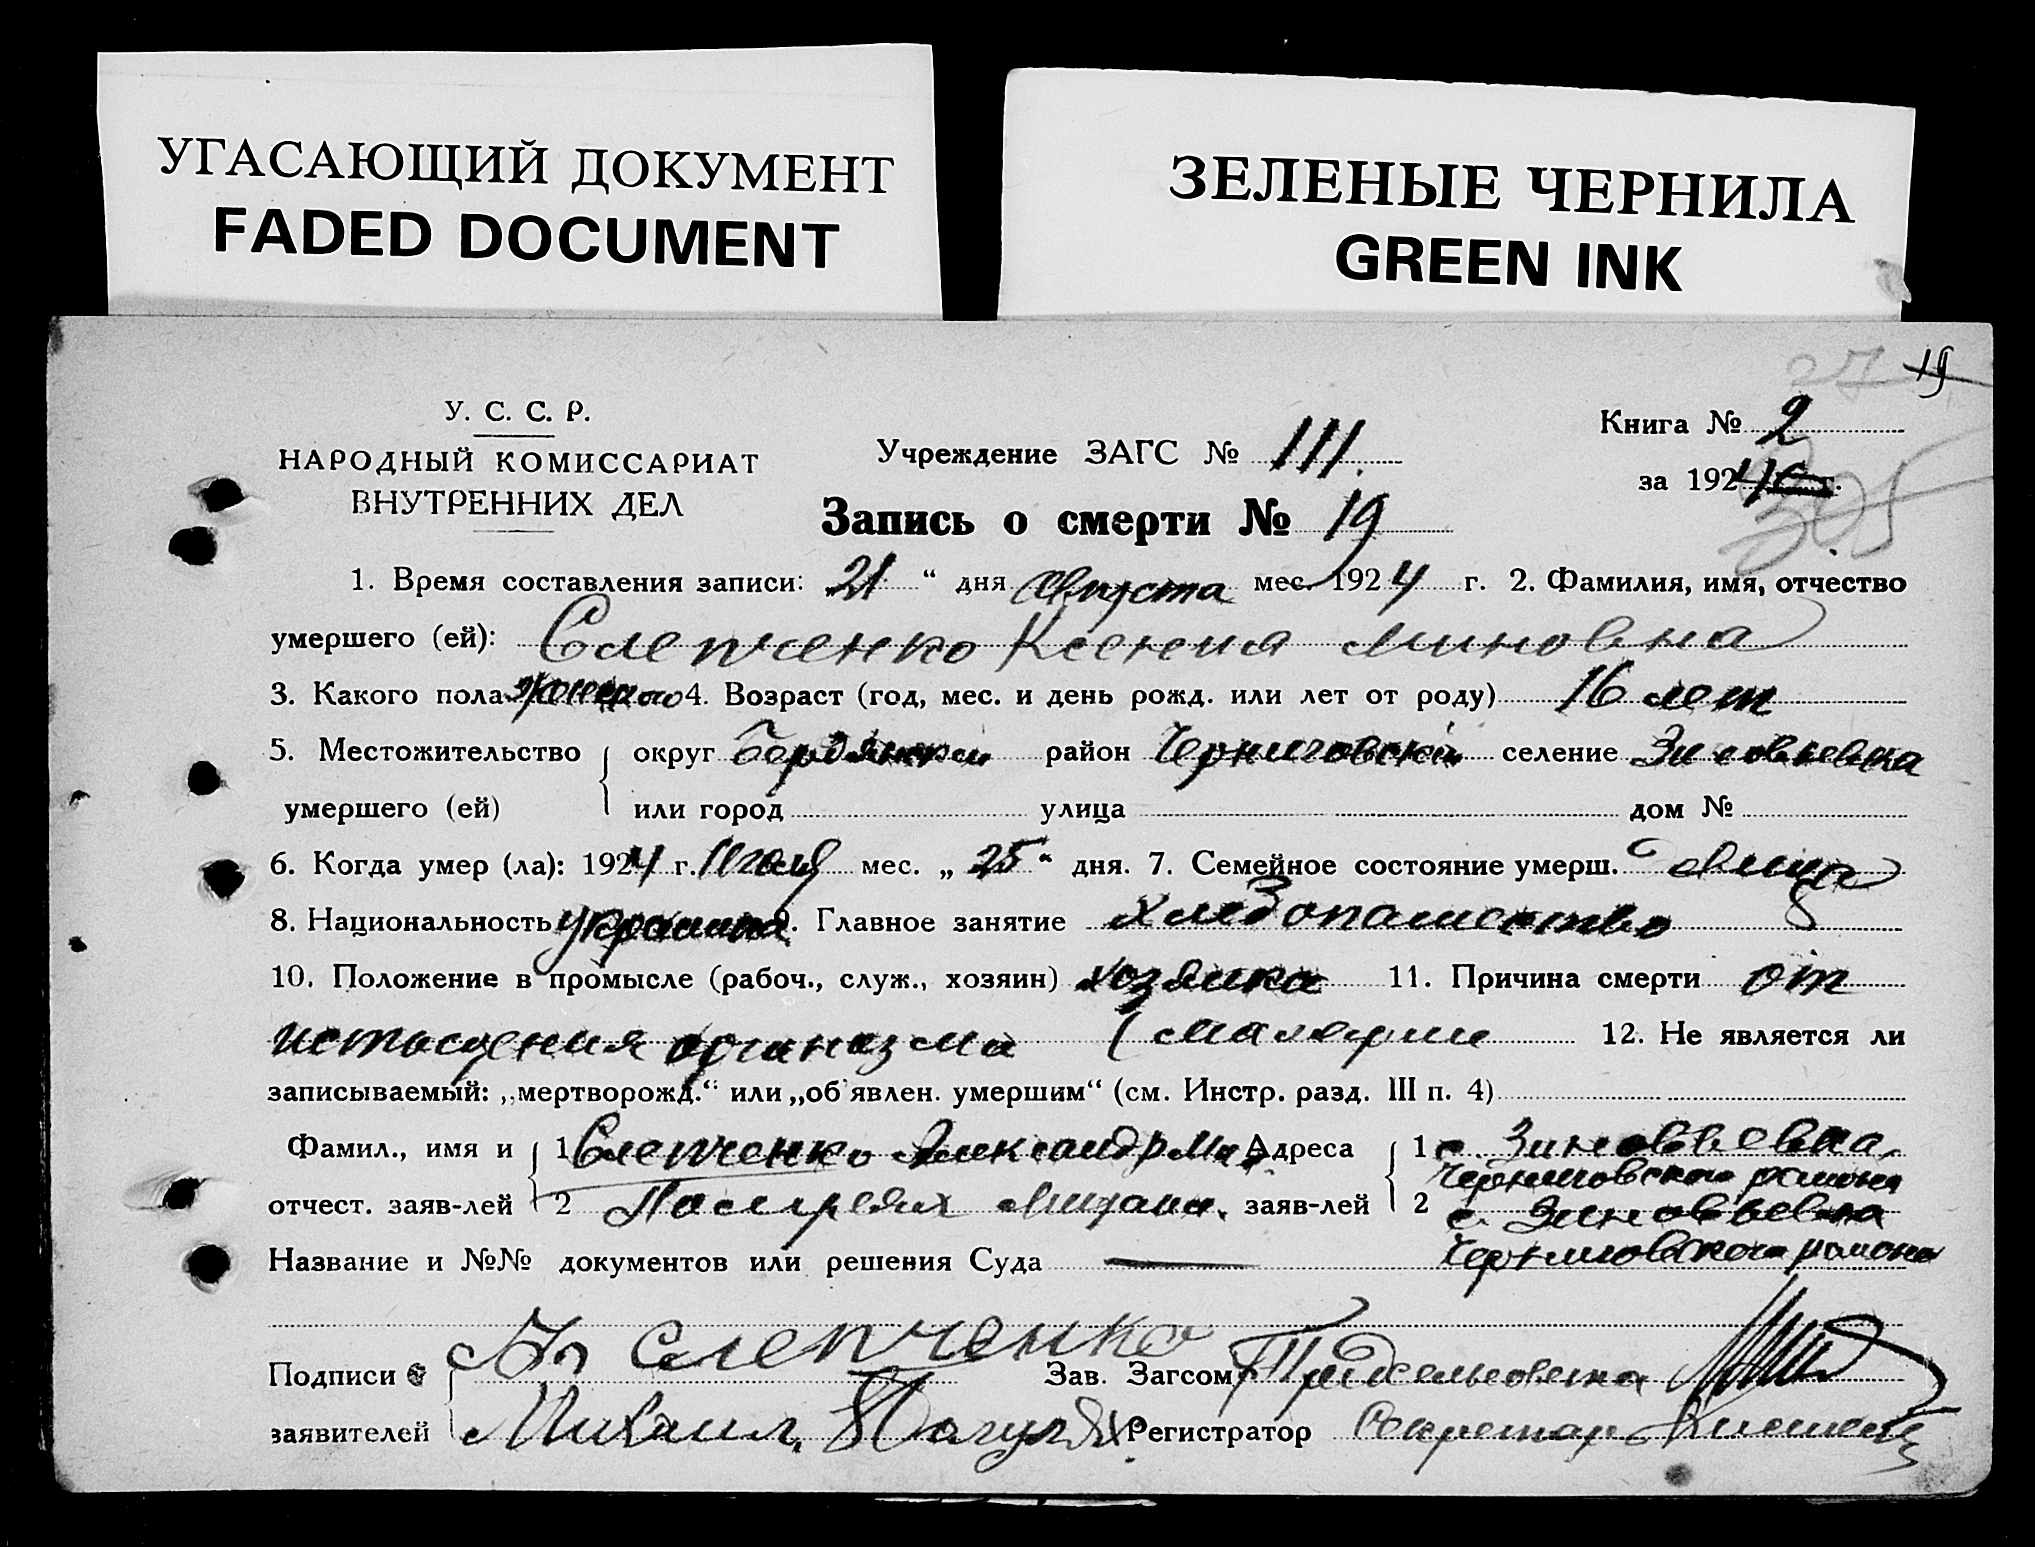 УГАСАЮЩИЙ ДОКУМЕНТ
FADED DOCUMENT
ЗЕЛЕНЫЕ ЧЕРНИЛА
GREEN INK
27 19
У. С. С. Р.
НАРОДНЫЙ КОМИССАРИАТ
ВНУТРЕННИХ ДЕЛ
Учреждение ЗАГС № 111.
Книга № 2
за 1924 г.
305
Запись о смерти № 19
1. Время составления записи: „21“ дня августа мес. 1924 г. 2. Фамилия, имя, отчество
умершего (ей): Слепченко Ксения Миновна
3. Какого пола женского 4. Возраст (год, мес. и день рожд. или лет от роду) 16 лет
5. Местожительство округ Бердянский район Черниговский селение Зиновьевка
умершего (ей) или город улица дом №
6. Когда умер (ла): 1924 г. мес. „25“ дня. 7. Семейное состояние умерш. девица
8. Национальность украинка 9. Главное занятие хлебопашество
10. Положение в промысле (рабоч., служ., хозяин) хозяйка 11. Причина смерти от
истощения организма (малярии 12. Не является ли
записываемый: „мертворожд.“ или „об'явлен. умершим“ (см. Инстр. разд. III п. 4)
Фамил., имя и 1 Слепченко Александр Адреса 1 с. Зиновьевка,
Черниговского района
отчест. заяв-лей 2 Михаил. заяв-лей 2 с. Зиновьевка
Черниговского района
Название и №№ документов или решения Суда —
Подписи Слепченко Зав. Загсом
заявителей Михаил Регистратор Секретарь